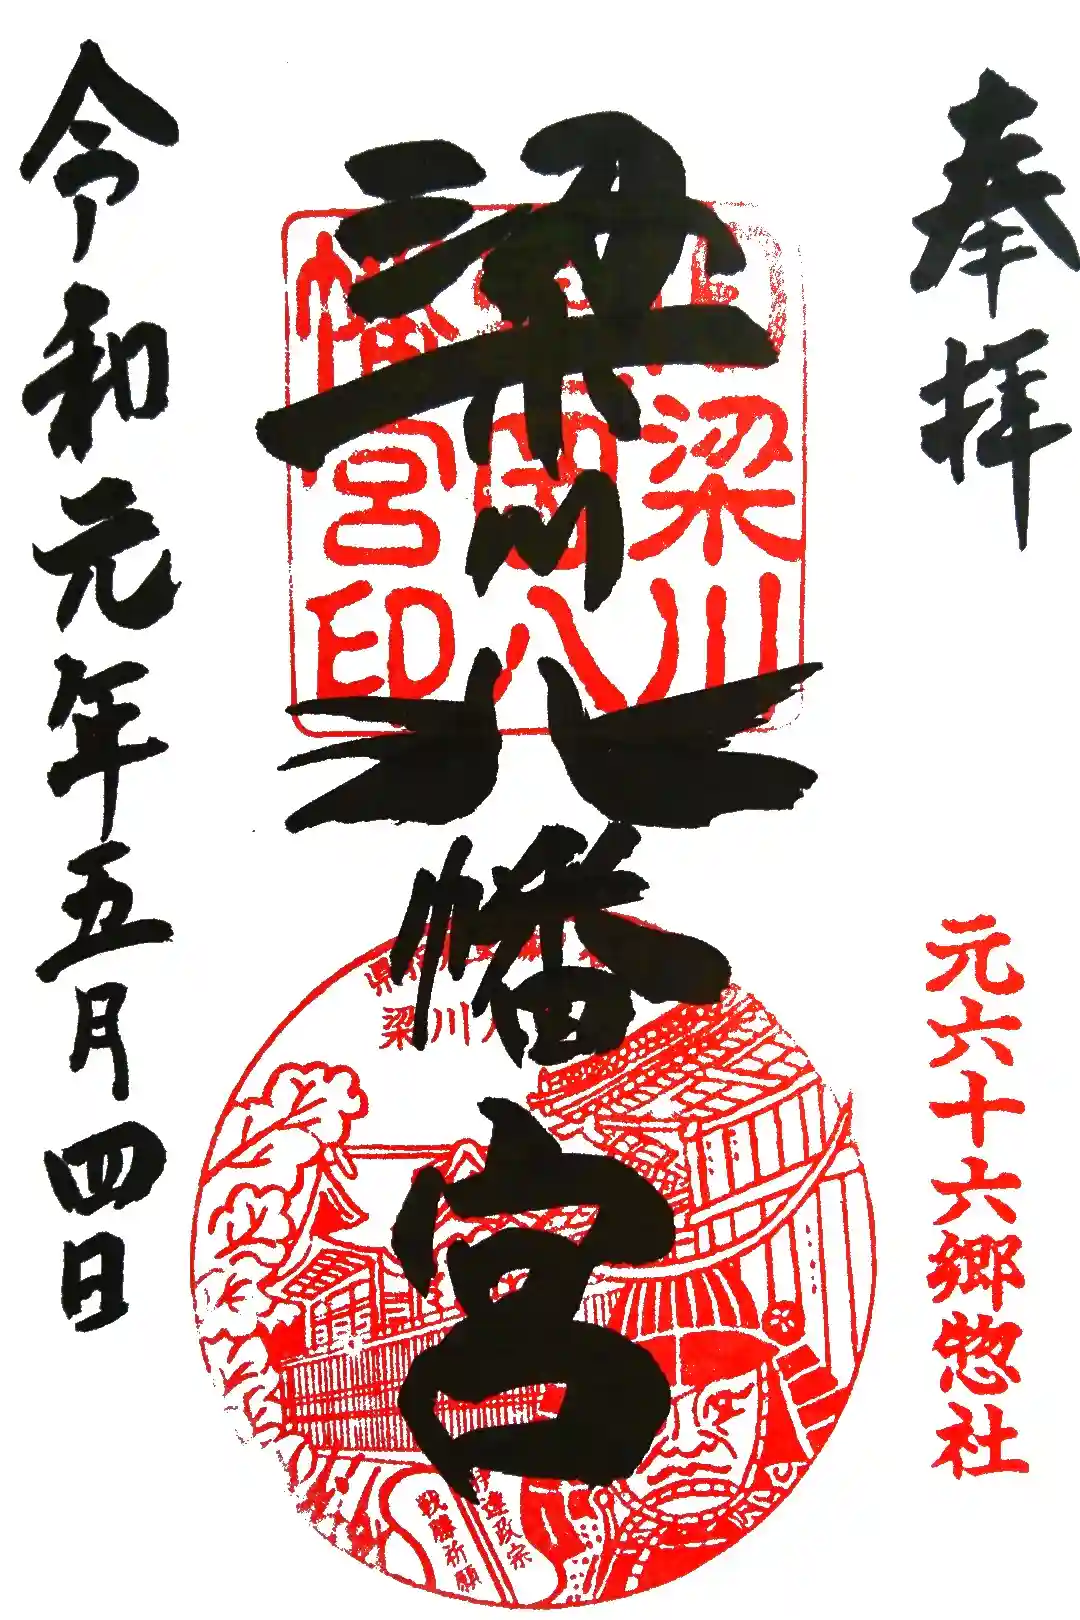 奉拝
元六十六郷惣社
梁川八幡宮
梁川
八
幡宮印
梁川
伊達政宗
戦勝祈願
令和元年五月四日